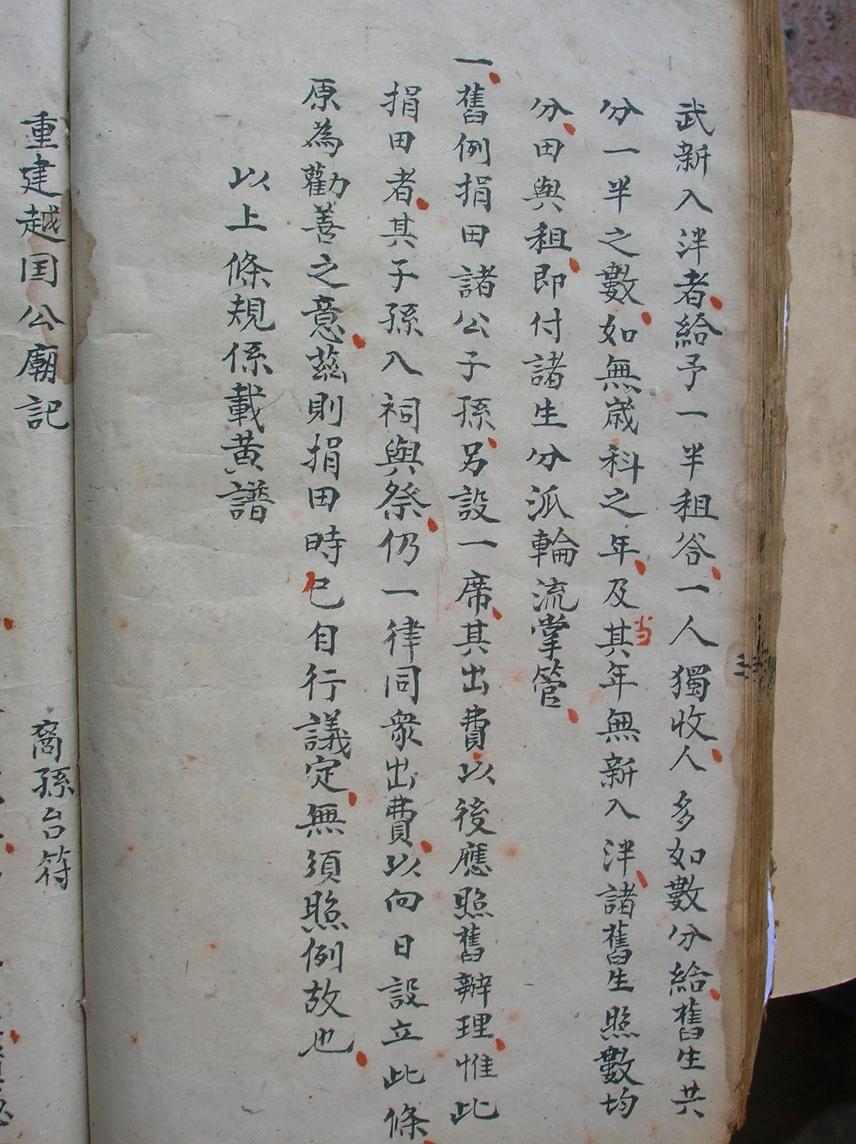 武新入泮者給予一半租谷一人獨收人多如數分給舊生共
分一半之數如無歲科之年及其当年無新入泮諸舊生照數均
分田與租即付諸生分派輪流掌管
一舊例捐田諸公子孫另設一席其出費以後應照舊辦理惟此
捐田者其子孫入祠與祭仍一律同衆出費以向日設立此條
原為勸善之意茲則捐田時已自行議定無須照例故也
以上條規係載黄譜
重建越国公廟記
裔孫台符